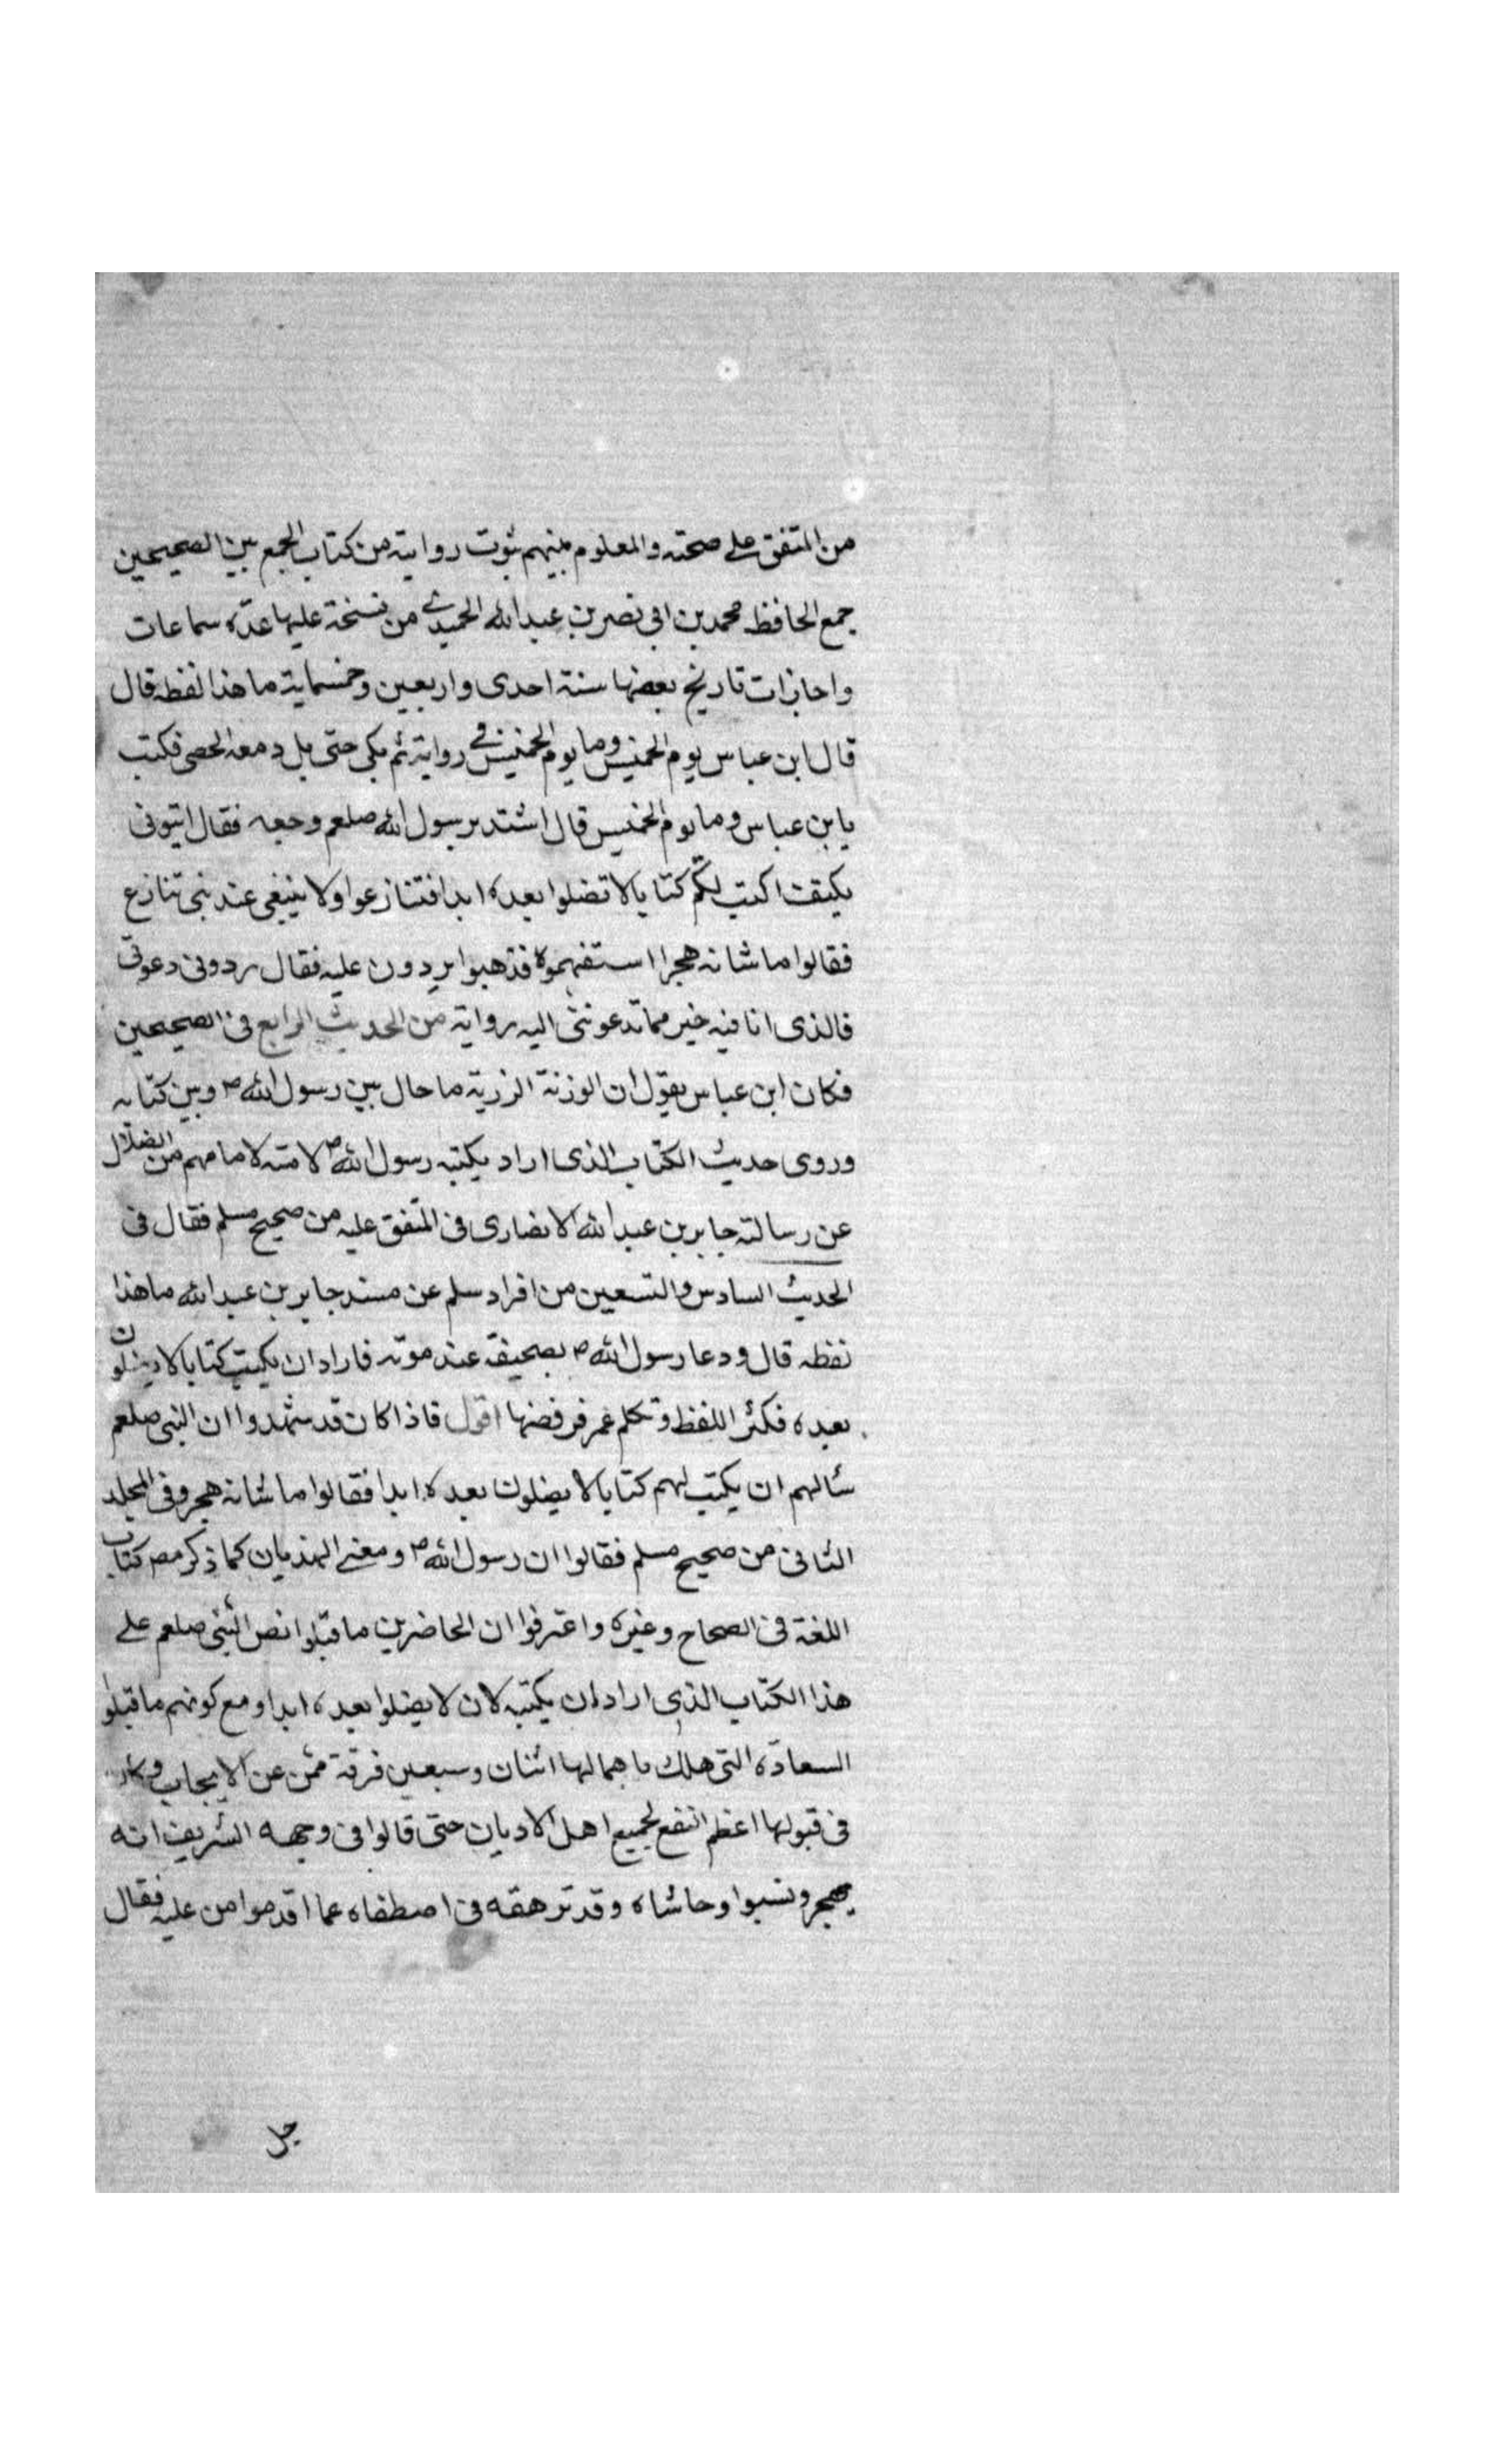 من المتفق على صحته والمعلوم بينهم ثبوت روايته من كتاب الجمع بين الصحيحين
جمع الحافظ محمد بن ابى نصر بن عبد الله الحميدى من نسخة عليها عدّه سماعات
واجازات تاريخ بعضها سنة احدى واربعين وخمسماية ما هذا لفظه قال
قال ابن عباس يوم الخميس وما يوم الخميس فى رواية ثم بكى حتى بل دمعه الحصى فكتب
يا بن عباس وما يوم الخميس قال اشتد برسول الله صلعم وجعه فقال ايتونى
بكيقت اكتب لكم كتابا لا تضلوا بعده ابدا فتنازعوا ولا ينبغى عند نبى تنازع
فقالوا ما شانه هجرا استفهموه فذهبوا يردون عليه فقال ردونى دعونى
فالذى انا فيه خير مما تدعوننى اليه رواية من الحديث الرابع فى الصحيحين
فكان ابن عباس يقول ان الوزنة الرزية ما حال بين رسول الله ص وبين كتابه
وروى حديث الكتاب الذى اراد يكتبه رسول الله ص لامته لا مامهم من الضلال
عن رسالته جابر بن عبد الله الانصارى فى المتفق عليه من صحيح مسلم فقال فى
الحديث السادس والتسعين من افراد سلم عن مسند جابر بن عبد الله ما هذا
لفظه قال ودعا رسول الله ص بصحيفة عند موته فاراد ان يكتب كتابا لا يضلون
بعده فكثر اللفظ وتكلم عمر فرفضها اقول فاذا كان قد شهدوا ان النبى صلعم
سألهم ان يكتب لهم كتابا لا يضلون بعده ابدا فقالوا ما شانه هجر وفى المجلد
الثانى من صحيح مسلم فقالوا ان رسول الله ص ومعنى الهذيان كما ذكر مص كتاب
اللغة فى الصحاح وغيره واعترفوا ان الحاضرين ما قبلوا نص النبى صلعم على
هذا الكتاب الذى اراد ان يكتبه لان لا يضلوا بعده ابدا ومع كونهم ما قبلوا
السعادة التى هلك باهمالها اثنان وسبعين فرقة ممن عن الايجاب
فى قبولها اعظم النفع لجميع اهل الاديان حتى قالوا فى وجهه الشريف انه
يهجر ونسبوا وحاشاه وقد ترهقه فى اصطفاه عما اقدموا من عليه فقال
جل